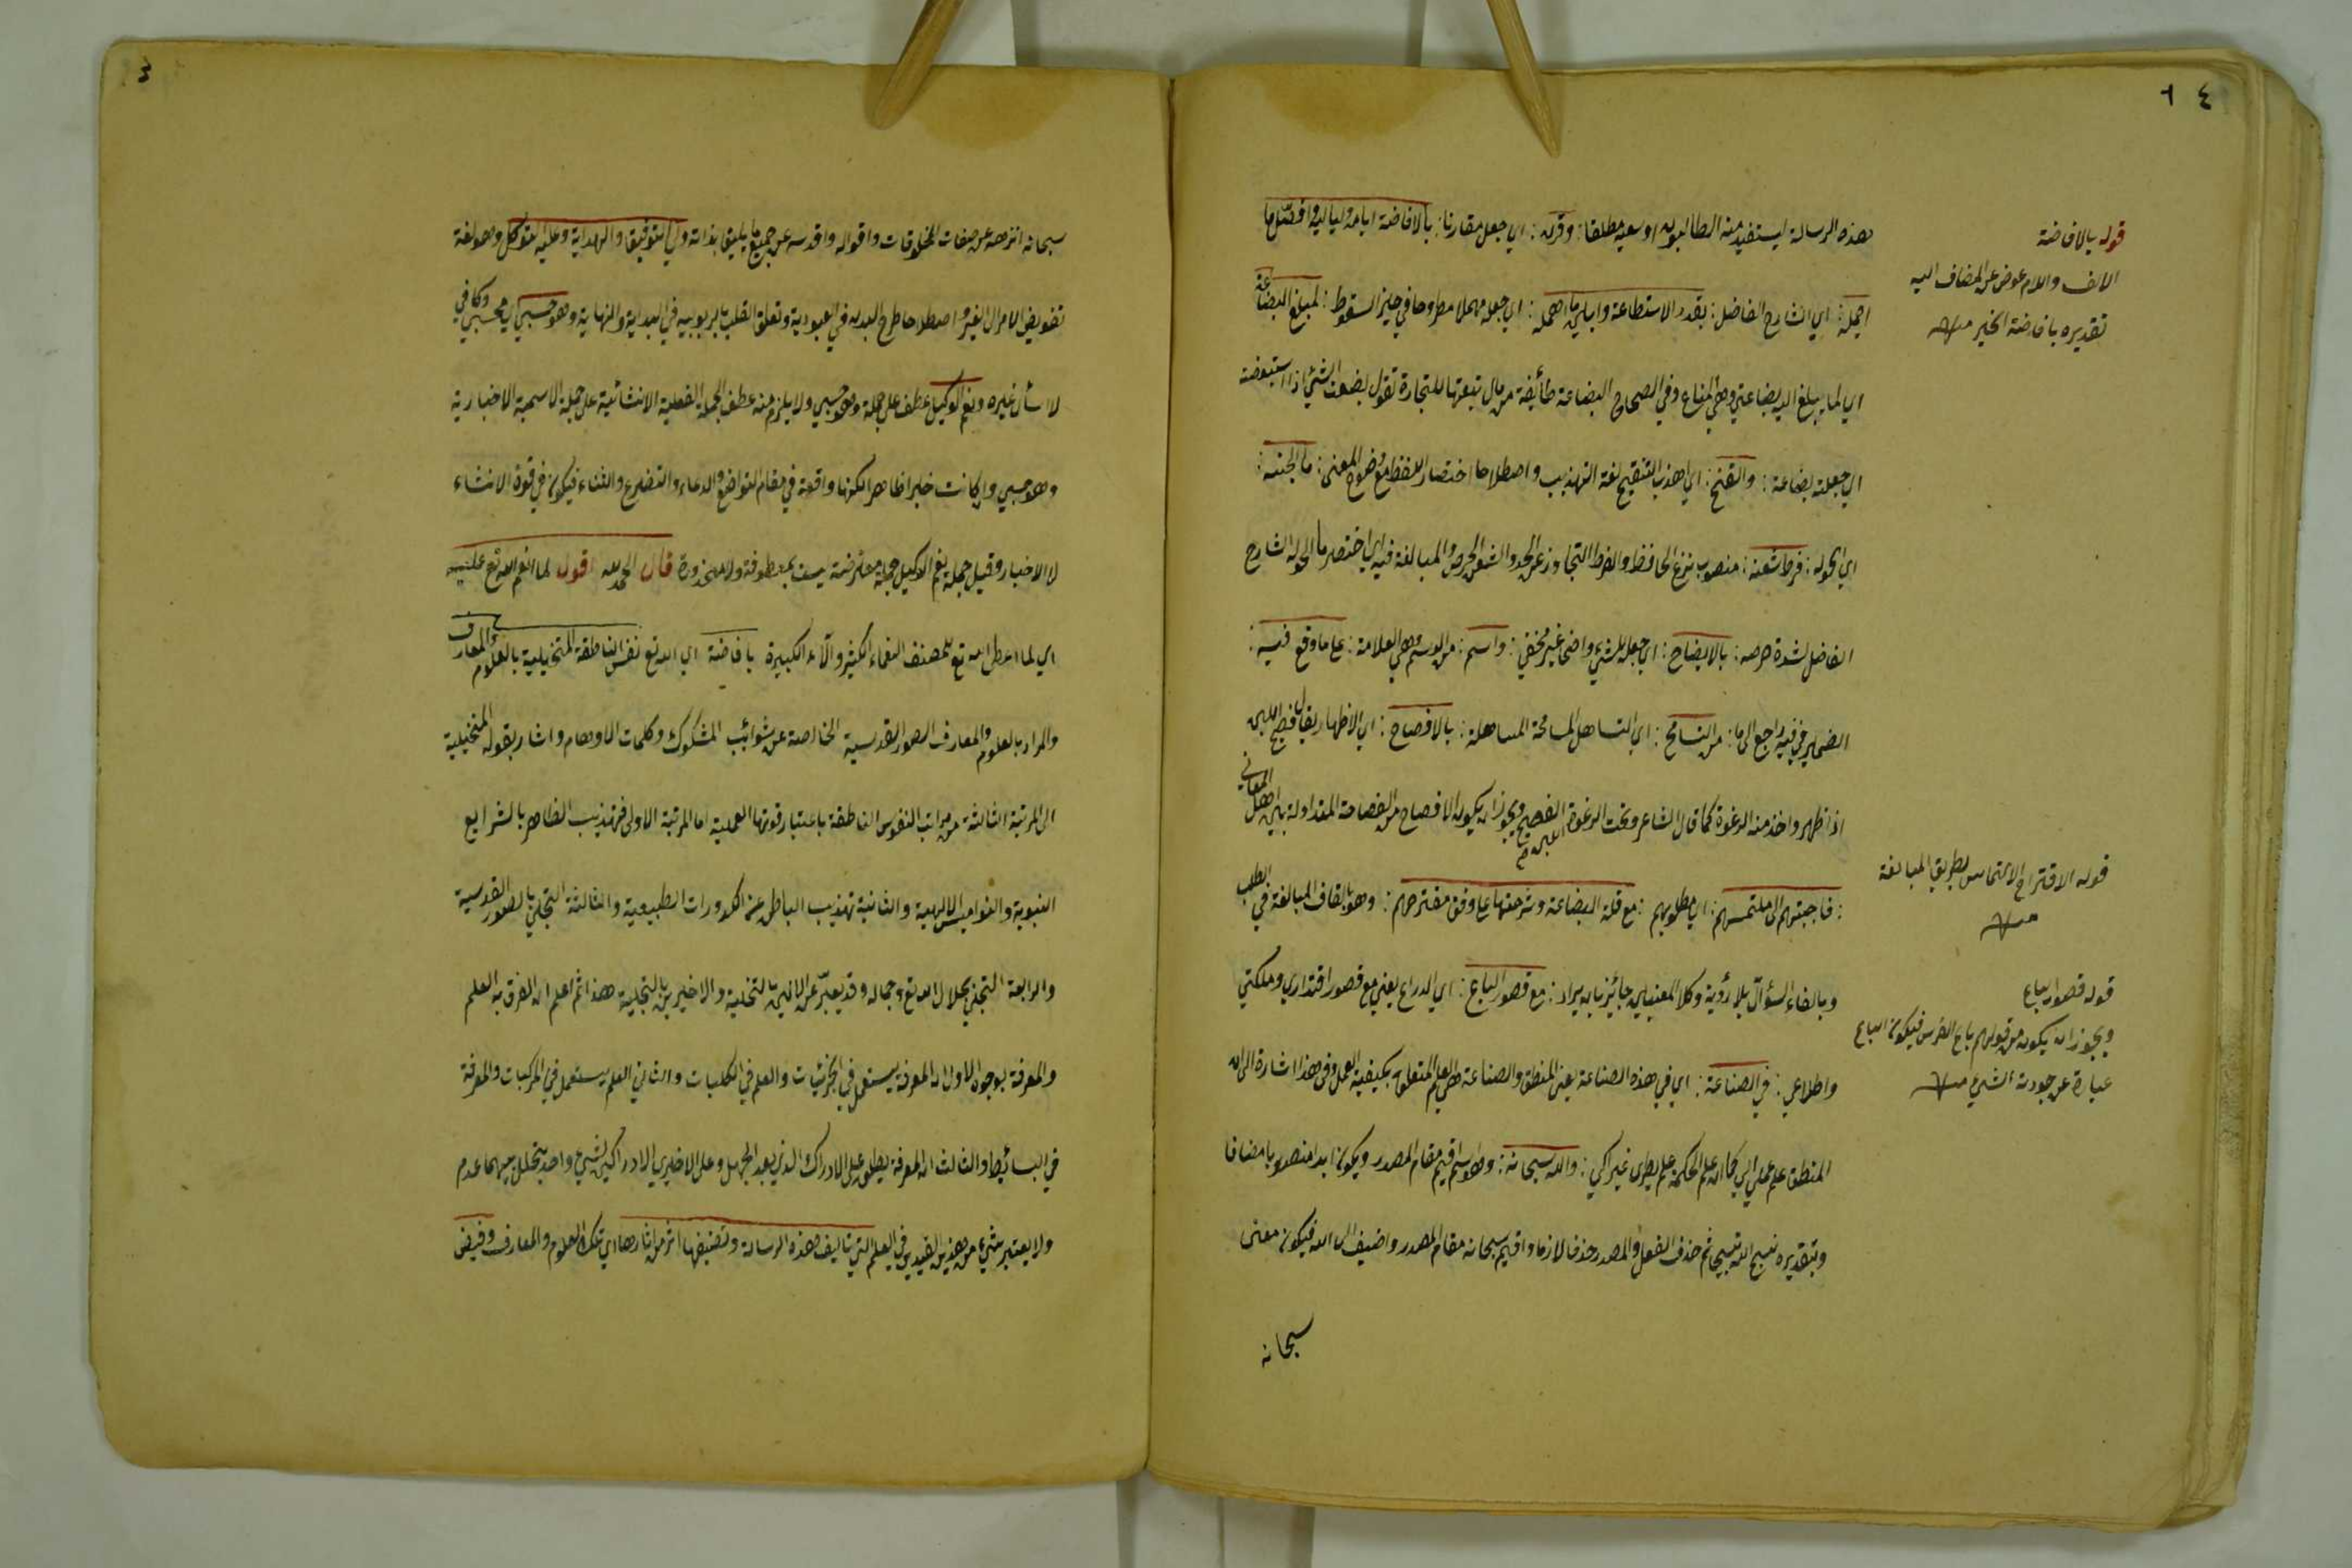 ٤ ٦
هذه الرسالة ليستفيد منه الطالبون او سعيه مطلقا: وقرن: اي جعل مقارنا: بالافاضة ايامه ولياليه وافصّل ما
اجمله: اي الشارح الفاضل: بقدر الاستطاعة وابيّن ما اهمله: اي جعله مهملا مطروحا في حيز السقوط: لمبلغ البضاعة
اي لما يبلغ اليه بضاعتي وهي المتاع وفي الصحاح البضاعة طائفة من مال تبعثها للتجارة تقول بضعت الشئ اذا استبضعته
اي جعلته بضاعة: والقنح: اي اهذب التنقيح لغة التهذيب واصطلاحا اختصار اللفظ مع وضوح المعنى: ما الحنه:
اي الحوله: فرط شعنه: منصوب بنزع الخافظ والفرط التجاوز عن الحد والشعن الحرص والمبالغة فيه اي اختصر ما الحوله الشارح
الفاضل لشدة حرصه: بالايضاح: اي جعل الشيء واضحا غير مخفي: واسم: من الوسم وهي العلامة: على ما وقع فيه:
الضمير في فيه راجع الى ما: من التسامح: اي التساهل المسامحة المساهلة: بالافصاح: اي الاظهار يقال فصح اللبن
اذا ظهر واخذ منه الرغوة كما قال الشاعر وتحت الرغوة اللبن الفصيح ويجوز ان يكون الافصاح من الفصاحة المتداولة بين اهل المعاني
: فاجبتهم الى ملتمسهم: اي مطلوبهم: مع قلة البضاعة وشرحتها على وفق مقترحهم: وهو بالقاف المبالغة في الطلب
وبالفاء السؤال بلا رؤية وكلا المعنيين جائز بان يراد: مع قصور الباع: اي الذراع يعني مع قصور اقتداري وملكتي
واطلاعي: في الصناعة: اي في هذه الصناعة يعنى المنطق والصناعة هي العلم المتعلق بكيفية العمل وفي هذا اشارة الى ان
المنطق علم عملي الي كما ان علم الحكمة علم نظري غير الي: والله سبحانه: وهو اسم اقيم مقام المصدر ويكون ابدا منصوبا مضافا
وبتقديره نسبح الله تسبيحا ثم حذف الفعل والمصدر حذفا لازما واقيم سبحانه مقام المصدر واضيف الى الله فيكون معنى
سبحانه
قوله بالافاضة
الالف واللام عوض عن المضاف اليه
تقديره بافاضة الخير منه
قوله الاقتراح الالتماس بطريق المبالغة
منه
قوله قصور الباع
ويجوز ان يكون من قولهم باع الفرس فيكون الباع
عبارة عن جودت الشيء منه
٤
سبحانه انزهه عن صفات المخلوقات واقواله واقدسه عن جميع ما يليق بذاته ولي التوفيق والهداية وعليه التوكل وهو لغة
تفويض الامر الى الغير واصطلاحا طرح البدن في العبودية وتعلق القلب بالربوبيه في البداية والنهاية وهو حسبي اي محسبي وكافي
لا اسأل غيره ونعم الوكيل عطف على جملة وهو حسبي ولا يلزم منه عطف الجملة الفعلية الانشائية على جملة الاسمية الاخبارية
وهو حسبي وان كانت خبرا ظاهرا لكنها واقعة في مقام التواضع والدعاء والتضرع والثناء فيكون في قوة الانشاء
لا الاخبار وقيل جملة نعم الوكيل جملة معترضة ليست بمعطوفة ولا محذورة قال الحمد لله اقول لما انعم الله تع عليه
اي لما اعطى الله تع للمصنف النعماء الكثيرة والآلاء الكبيرة بافاضة اي الله تع نفس الناطقة المتخيلية بالعلوم والمعارف
والمراد بالعلوم والمعارف الصور القدسية الخالصة عن شوائب الشكوك وكلمات الاوهام واشار بقوله المتخيلية
الى المرتبة الثالثة من مراتب النفوس الناطقة باعتبار قوتها العملية اما المرتبة الاولى فتهذيب الظاهر بالشرايع
النبوية والنواميس الالهية والثانية تهذيب الباطن عن الكدورات الطبيعية والثالثة التجلي بالصور القدسية
والرابعة التجلي بجلال الله تع وجماله وقد يعبّر عن الاثنين بالتخلية والاخيرين بالتجلية هذا ثم اعلم ان الفرق بين العلم
والمعرفة بوجوه الاول ان المعرفة يستعمل في الجزئيات والعلم في الكليات والثاني العلم يستعمل في المركبات والمعرفة
في البسائط والثالث ان المعرفة يطلق على الادراك الذي بعد الجهل وعلى الاخير من الادراكين لشيء واحد يتخلل بينهما عدم
ولا يعتبر شيء من هذين القيدين في العلم التي تاليف هذه الرسالة وتصنيفها اثر من اثارها اي تلك العلوم والمعارف وفيض